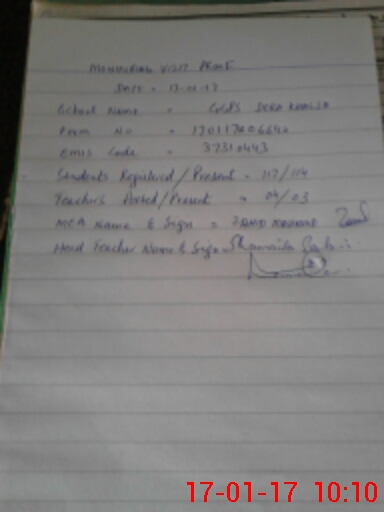 MONITORING VISIT PROOF
DATE = 17-01-17
School Name = GGPS DERA KHALSA
Form No =
EMIS Code = 37310443
Students Registered/Present = 117/114
Teachers Posted/Present = 04/03
MEA Name & Sign =
Head Teacher Name & Sign =
17-01-17 10:10